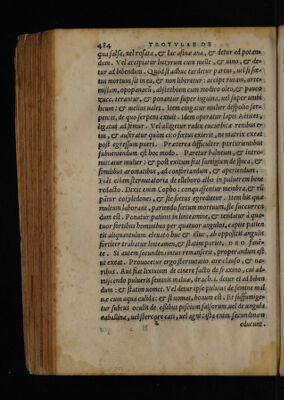 484 TROTVLAE DE
qua salsa, vel rosata, & lac asinæ ana, & detur ad potan-
dum. Vel accipiatur butyrum cum melle, & uino, & de-
tur ad bibendum. Quòd si adhuc tardetur partus, uel si fœ-
tus mortuus sit in ea, & non liberetur: accipe rutam, arte-
misiam, opoponacũ, absinthium cum modico oleo, & pauco
zucc. terantur, & ponantur super inguina, uel super umbi
licum: & melius ualet. Item cingatur mulier despolio ser-
pentis, de quo serpens exiuit. Idem operatur lapis
ligatus ad femur. Vel alligetur radix cucurbitæ renibus e-
ius, & auferatur quàm citò fœtus exierit, ne matrix exeat
post egressum pueri. Præterea difficulter parientibus
subueniendum est hoc modo. Paretur balneum, & intro-
mittatur mulier: & post exitum fiat fumigium de spica, &
similibus aromatibus, ad confortandum, & aperiendum.
Fiat etiam sternutatoria de elleboro albo in puluerem bene
redacto. Dixit enim Copho: conquassentur membra, & rũ
pãtur cotyledones, & sic fœtus egredietur. Item his quæ
multum laborant, pariendo fœtum mortuum, sic succurren
dum est. Ponatur patiens in linteamine, & tendatur à qua-
tuor fortibus hominibus per quatuor angulos, capite patien
tis aliquantulum eleuato huc & illuc, ab oppositis angulis
fortiter trahatur linteamen, & statim pariet, DEO fauen-
te. Si autem secundina intus remanserit, properandum est
ut exeat. Prouocetur ergo sternutatio ore clauso, & na-
ribus. Aut fiat lixiuium de cinere facto de fraxino, cui ad-
misceatur pulueris seminis maluæ, drach. i. detur ei ad biben
dum: & statim uomet. Vel detur ipse puluis de semine mal
uæ cum aqua calida: & si uomat, bonum est. Fit suffumige-
tur subtus oculis de piscium salsorum, uel de ungula
caballina, uel stercore cati, uel agni: ista enim secundinam
educunt.